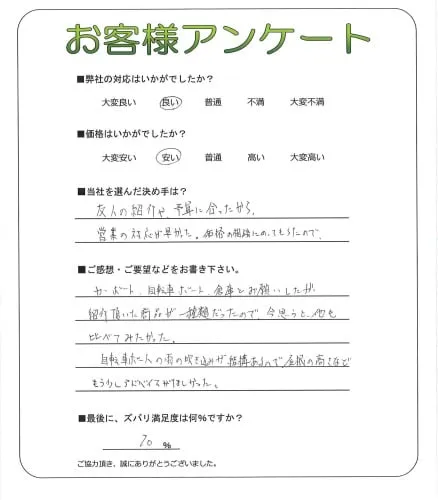 お客様アンケート
■弊社の対応はいかがでしたか？
大変良い 良い 普通 不満 大変不満
■価格はいかがでしたか？
大変安い 安い 普通 高い 大変高い
■当社を選んだ決め手は？
友人の紹介や、予算に合ったから。
営業の対応が早かった。価格の相談にのってもらたので、
■ご感想・ご要望などをお書き下さい。
カーポート、自転車 倉庫とお願いしたが
紹介頂いた商品が一種類だったので、今思うと、他も
比べてみたかった。
自転車 の雨の吹き込みが結構あるので、屋根の高さなど
もう少し ほしかった。
■最後に、ズバリ満足度は何%ですか？
70 %
ご協力頂き、誠にありがとうございました。